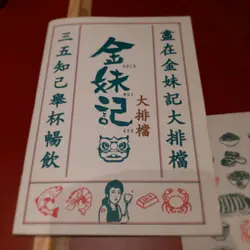 盡在金妹記大排檔
金妹記
大排檔
三五知己舉杯暢飲